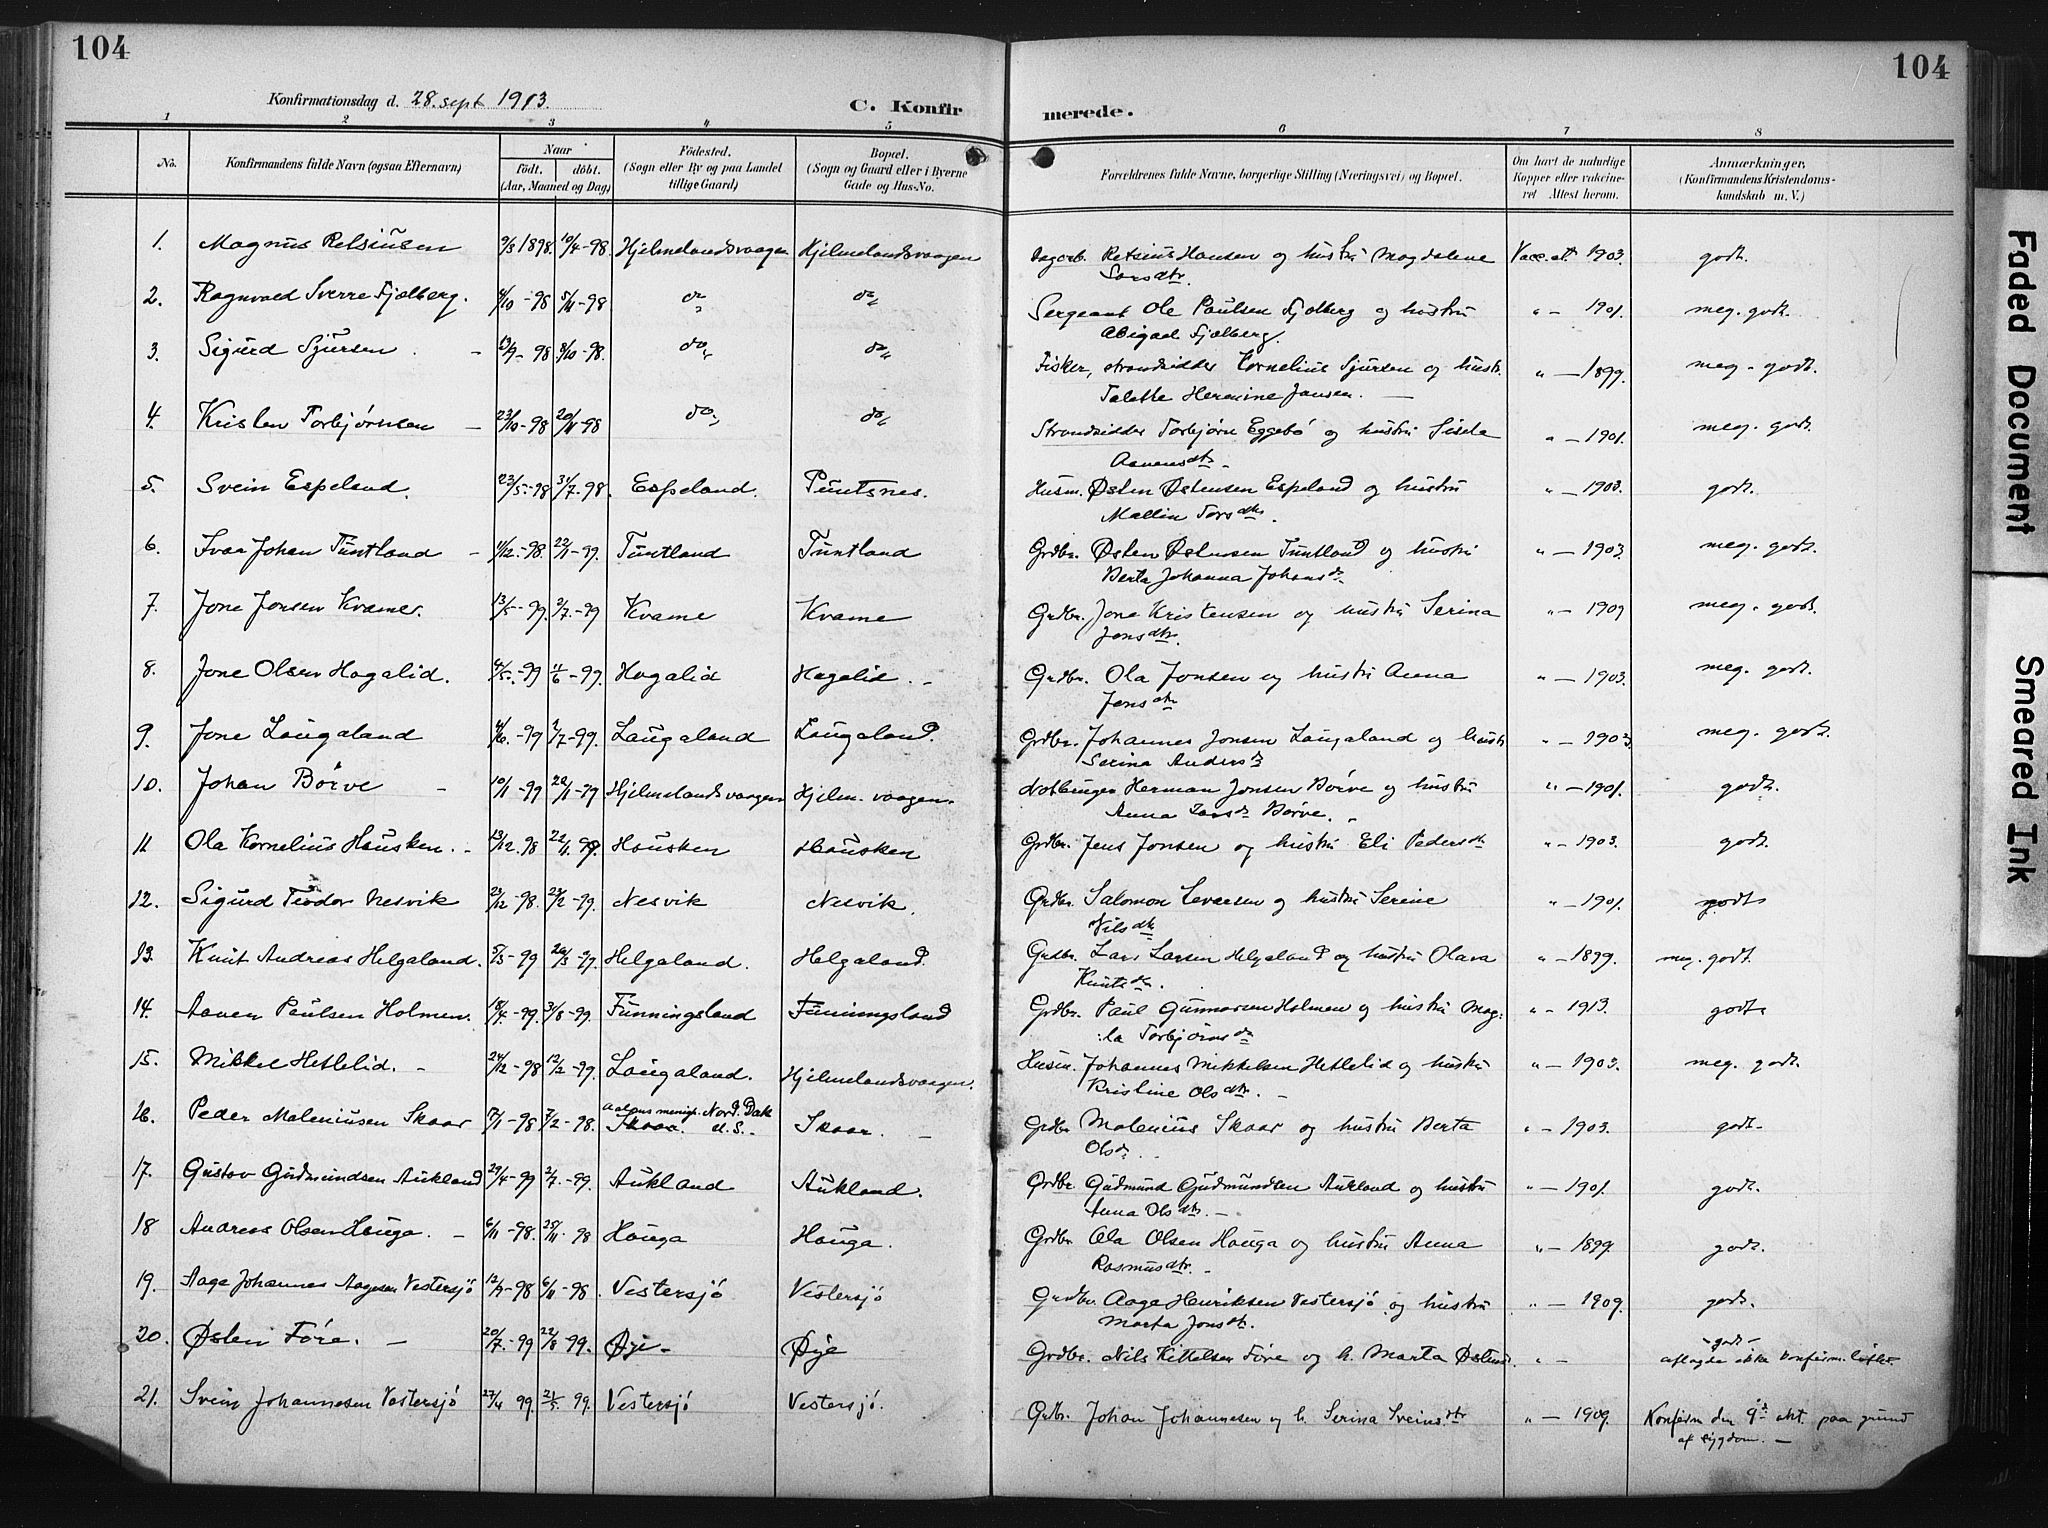 104
104
Konfirmationsdag d. 28. sept 1913.
C. Konfirmerede.
1 2 3 4 5 6 7 8
No.
Konfirmandens fulde Navn (ogsaa Efternavn)
Naar
födt. döbt.
(Aar, Maaned og Dag)
Födested.
(Sogn eller By og paa Landet
tillige Gaard)
Bopæl.
(Sogn og Gaard eller i Byerne
Gade og Hus-No.
Forældrenes fulde Navne, borgerlige Stilling (Næringsvei) og Bopæl.
Om havt de naturlige
Kopper eller vakcine-
ret Attest herom.
Anmærkninger,
(Konfirmandens Kristendoms-
kundskab m. V.)
1. Magnus Retsiusen 9/3 1898. 10/4-98. Hjelmelandsvaagen Hjelmelandsvaagen Retsius Hansen og hustru Magdalene Vacc. att 1903. godt.
Larsdtr.
2. Ragnvald Sverre Fjelberg. 4/10-98 5/11-98 do do Sergeant Ole Paulsen Fjelberg og hustru " - 1901. meg. godt.
Abigael Fjelberg.
3. Sigurd Sjursen. - 13/9-98 8/10-98. do do Fisker, strandsidder Kornelius Sjursen og hustr. " - 1899. meg. godt.
Talette Hermine Jansen. -
4. Kristen Torbjørnsen - 23/10-98 20/11-98 do do Strandsidder Torbjørn Eggebö og hustru Sisela " - 1901. meg. godt.
Aanensdtr -
5. Svein Espeland. 23/5-98 31/7-98. Espeland. Puntsnes. Husm. Østen Østensen Espeland og hustru " - 1903. godt.
Mallin Torsdtr.
6. Ivar Johan Tuntland - 11/12-98. 22/1-99. Tuntland Tuntland Grdbr. Østen Østensen Tuntland og hustru " - 1903 meg. godt.
Berta Johanna Johansdr.
7. Jone Jonsen Kvame. 13/5-99. 2/7-99 Kvame Kvame Grdbr. Jone Kristensen og hustru Serina " - 1909 meg. godt.
Jonsdtr.
8. Jone Olsen Hagalid. 4/5-99 11/6-99. Hagalid Hagalid. - Grdbr. Ola Jonsen og hustru Anna " - 1903. meg. godt.
Jonsdtr
9. Jone Laugaland 4/6-99 2/7-99. Laugaland Laugaland. Grdbr. Johannes Jonsen Laugaland og hustr " - 1903. meg. godt.
Serina Andersdr
10. Johan Börve - 10/1-99 22/1-99 Hjelmelandsvaagen Hjelm. vaagen. Notbruger Herman Jonsen Börve og hustru " - 1901. godt.
Anna Larsdr Börve.
11 Ola Kornelius Hausken. - 13/12.98 22/1.99. Hausken Hausken Grdbr. Jens Jonsen og hustru Eli Pedersdtr " - 1903. godt.
12. Sigurd Teodor Nesvik 23/12-98. 23/2-99. Nesvik Nesvik. Grdbr. Salomon Levarsen og hustru Serine " - 1901. godt
Nilsdtr
13. Knut Andreas Helgaland. 5/3-99 26/3-99. Helgaland. Helgaland. Grdbr. Lars Larsen Helgaland og hustru Olava " - 1899. meg. godt.
Knutsdr.
14. Aanen Paulsen Holmen. 18/4-99. 31/8-99. Funningsland Funningsland Grdbr. Paul Gunnarsen Holmen og hustru Mag- " - 1913. godt
la Torbjörnsdr
15. Mikkel Hetlelid. - 24/12-98 12/2-99. Laugaland. Hjelmelandsvaagen. Husm. Johannes Mikkelsen Hetlelid og hustru " - 1903. meg. godt.
Kristine Olsdtr. -
16. Peder Maleniusen Skaar 7/1-98 7/2-98. menigh. Nord. Dak. Skaar. U.S. Skaar. - Grdbr Malenius Skaar og hustru Berta " - 1903. godt.
Olsdr.
17. Gustav Gudmundsen Aukland 29/4-99 2/7-99. Aukland Aukland. Grdbr. Gudmund Gudmundsen Aukland og hustru " - 1901. godt.
Anna Olsdtr. -
18 Andreas Olsen Hauga. - 6/11-98. 25/11-98 Hauga Hauga. Grdbr. Ola Olsen Hauga og hustru Anna " - 1899. godt.
Rasmusdtr. -
19. Aage Johannes Aagesen Vestersjö 12/9-98 6/11-98. Vestersjö Vestersjö Grdbr. Aage Henriksen Vestersjö og hustru " - 1909. godt.
Marta Jonsdtr.
20. Østen Före. - 20/7-99 22/8 99. Øye - Øye Grdbr. Nils Kittelsen Före og h. Marta Østensd. " - - godt -
aflagde ikke konfirm. löfte
21. Svein Johannesen Vestersjö 27/4 99. 21/5 99. Vestersjö Vestersjö. Grdbr. Johan Johannesen og h. Serina Sveinsdtr " - 1909. Konfirm den 9de okt. paa grund
af sygdom. -
Faded Document
Smeared Ink